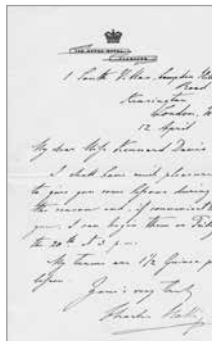 1 South Villas, Campden Hill
Road
Kensington
London, W
12 April
My dear Miss Kennard Davis
I shall have much pleasure
to give you some lessons during
the season and, if convenient to
you, I can begin them on Friday
the 20th at 3 p.m.
My terms are 1½ Guinea per
lesson.
Yours very truly
Charles Hallé